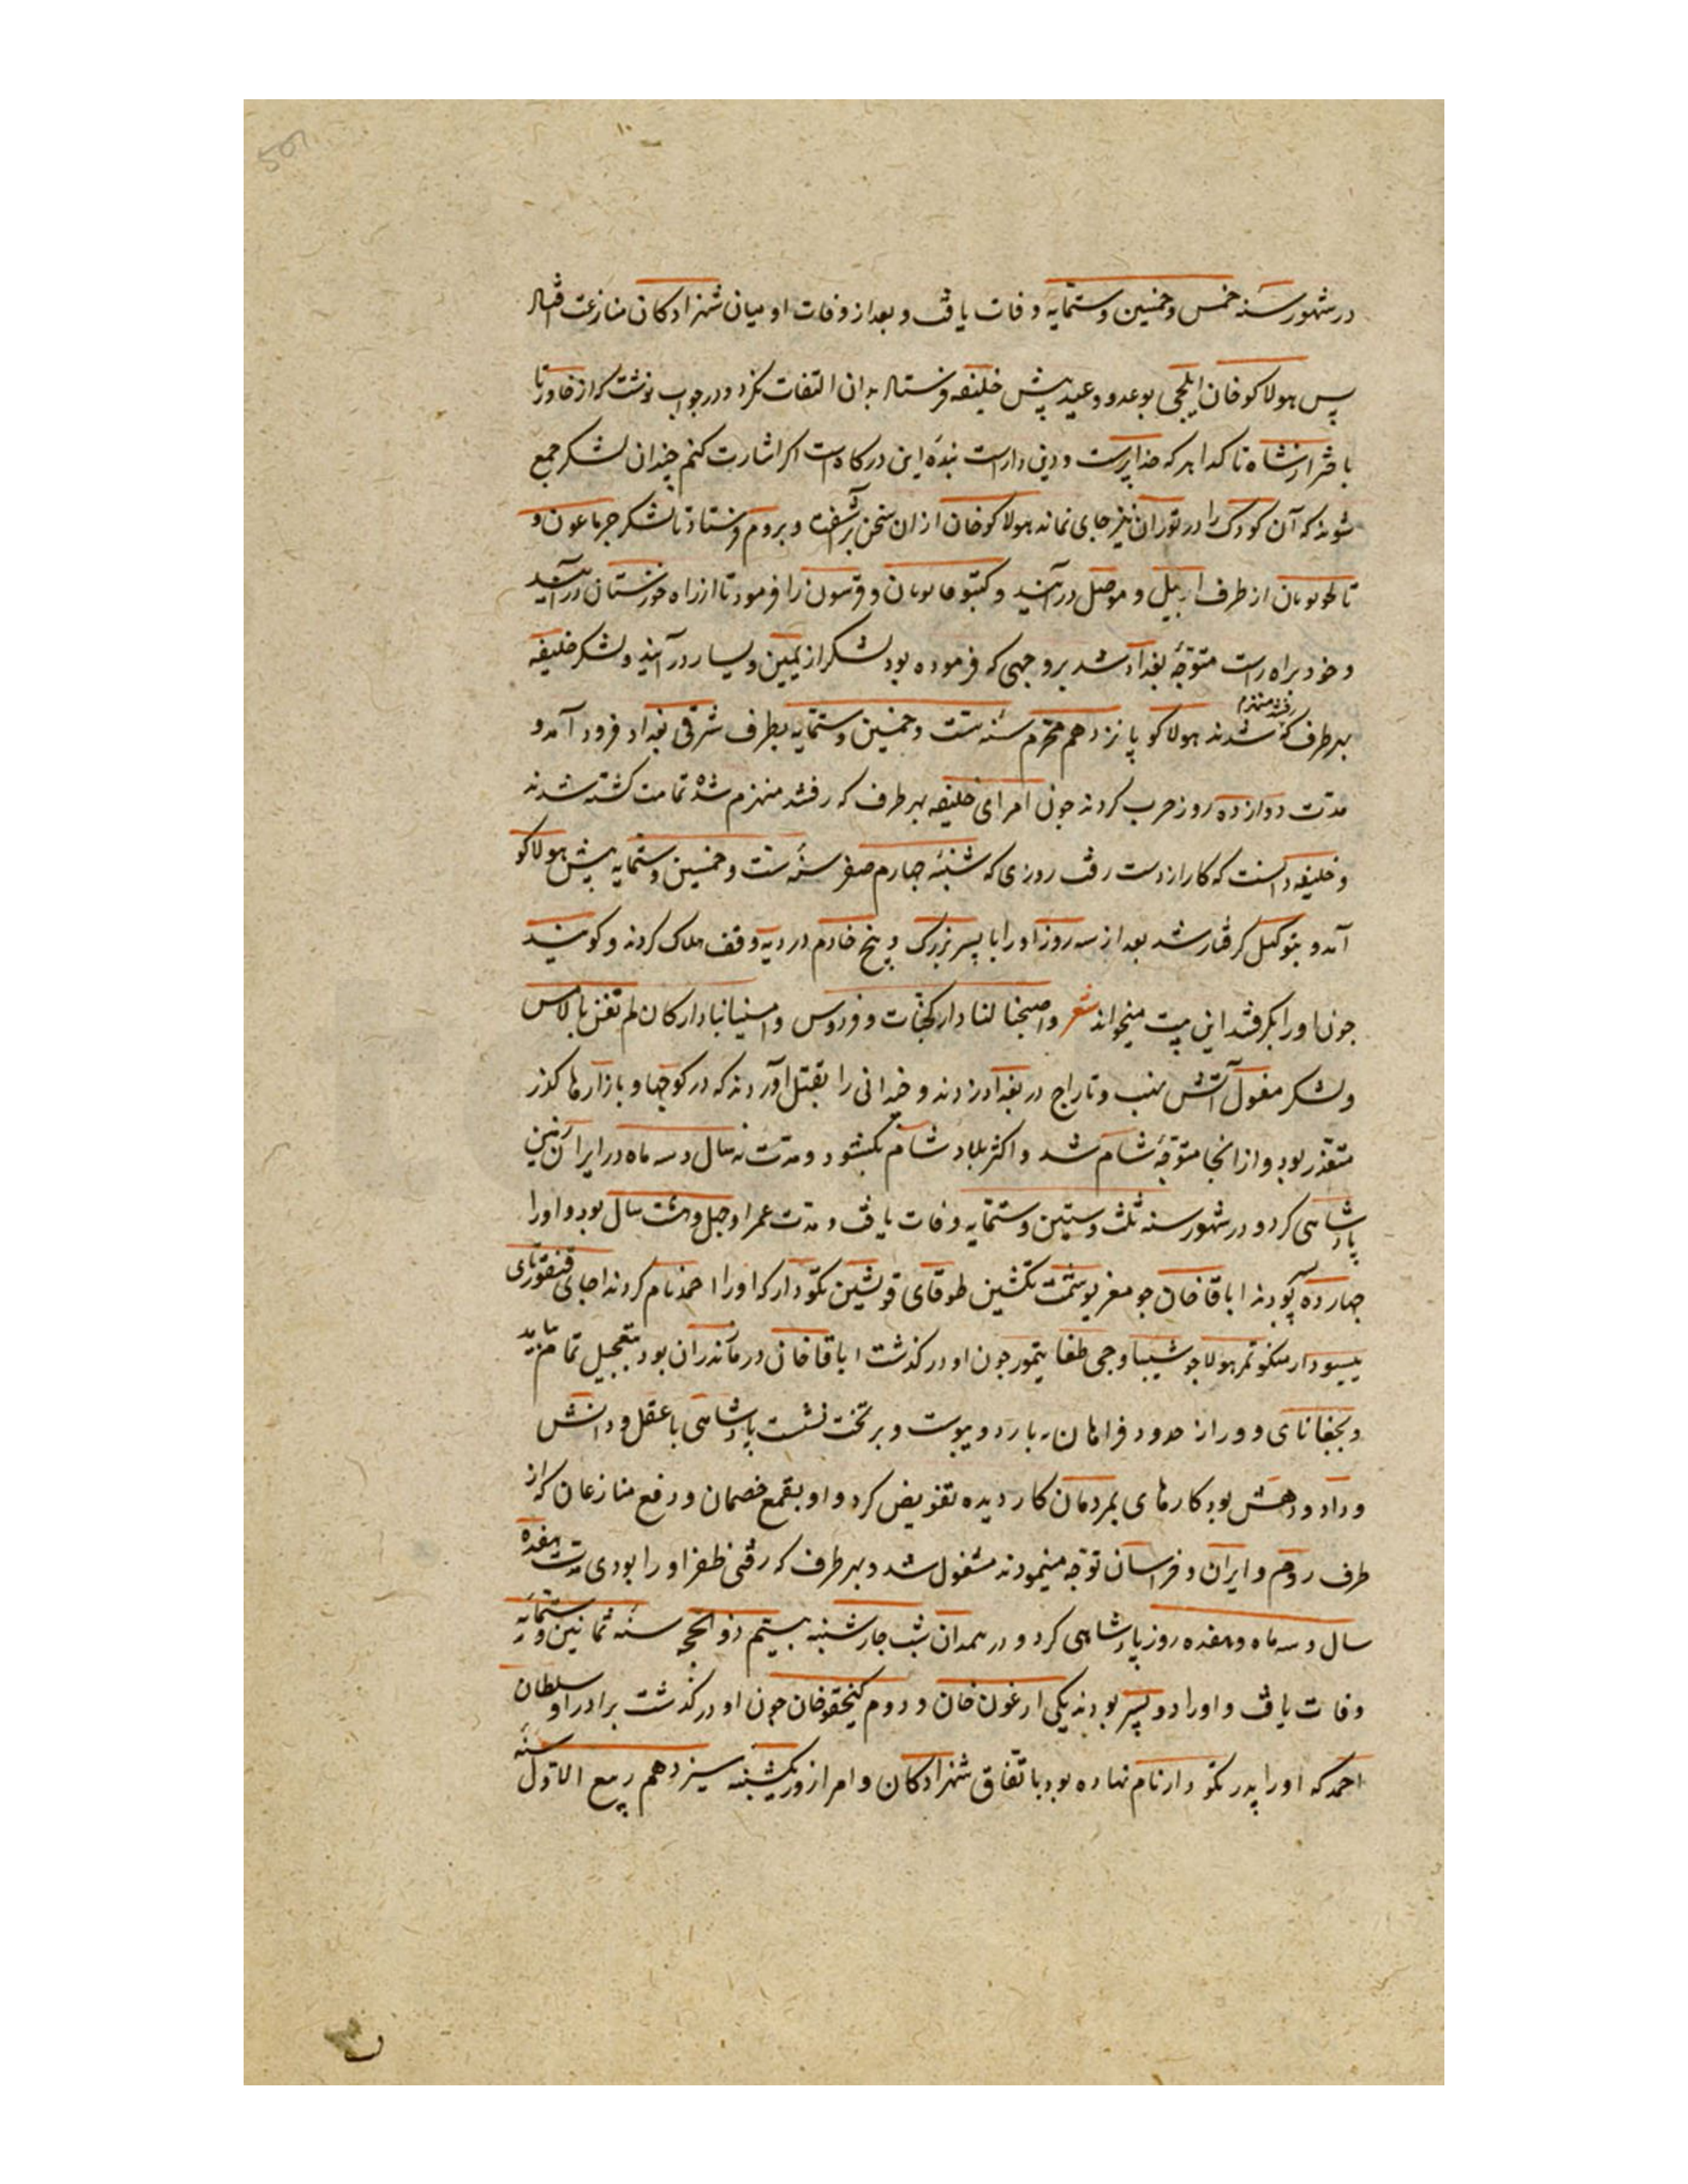 در شهور سنه خمس و خمسین و ستمایه وفات یافت و بعد از وفات او میان شهزادکان منازعت افتاد
پس هولاکو خان ایلچی بوعد و وعید پیش خلیفه فرستاد بدان التفات نکرد و در جواب نوشت که از خاور تا
باختر از شاه تا کدا هر که خداپرست و دین دارست بندۀ این درکاه است اکر اشارت کنم چندان لشکر جمع
شوند که آن کودک را در توران نیز جای نماند هولاکو خان ازان سخن برآشفت و بروم فرستاد تا لشکر جرماغون و
از طرف اربیل و موصل درآیند و و را فرمود تا از راه خوزستان درآیند
و خود براه راست متوجّه بغداد شد بر وجهی که فرموده بود لشکر از یمین و یسار درآیند و لشکر خلیفه
بهر طرف که رفتند منهزم شدند هولاکو پانزدهم محرّم سنه ستّ و خمسین و ستمایه بطرف شرقی بغداد فرود آمد و
مدّت دوازده روز حرب کردند جون امرای خلیفه بهر طرف که رفتند منهزم شدۀ تمامت کشته شدند
و خلیفه دانست که کار از دست رفت روزی که شنبۀ جهارم صفر سنۀ ست و خمسین و ستمایه پیش هولاکو
آمد و بتوکیل کرفتار شد بعد از سه روز او را با پسر بزرک و پنج خادم در دیه وقف هلاک کردند و کویند
جون او را بکرفتند این بیت میخواند شعر و اصبحنا لنا دار کجنّات و فردوس و امسینا بلا دار کان لم تغن بالامس
و لشکر مغول آتش نهب و تاراج در بغداد زدند و خیدانی را بقتل آوردند که در کوچها و بازارها کذر
متعذّر بود و از آنجا متوجّۀ شام شد و اکثر بلاد شام بکشود و مدّت نه سال و سه ماه در ایران زمین
پادشاهی کرد و در شهور سنه ثلث و ستین و ستمایه وفات یافت و مدّت عمر او جهل و هشت سال بود و او را
جهارده پسر بودند اباقا خان جومغر یوشمت تکشین طوقای قونشین نکودار که او را احمد نام کردند اجای قنقورتای
ییسودار منکوتمر هولاجو شیباوجی طغایتمور جون او درکذشت اباقا خان در مازندران بود بتعجیل تمام بیامد
و از حدود و بر تخت نشست پادشاهی با عقل و دانش
و داد و دهش بود کارهای بمردمان کار دیده تفویض کرد و او بقمع خصمان و رفع منازعان که از
طرف روم و ایران و خراسان توجّه مینمودند مشغول شد و بهر طرف که رفتی ظفر او را بودی مدّت هفده
سال و سه ماه و هفده روز پادشاهی کرد و در همدان شب جارشنبه بیستم ذوالحجه سنه ثمانین و ستمایه
وفات یافت و او را دو پسر بودند یکی ارغون خان و دوم کیخقو خان جون او درکذشت برادر او سلطان
احمد که او را پدر نکودار نام نهاده بود باتّفاق شهزادکان و امرا روز یکشنبه سیزدهم ربیع الاوّل سنه